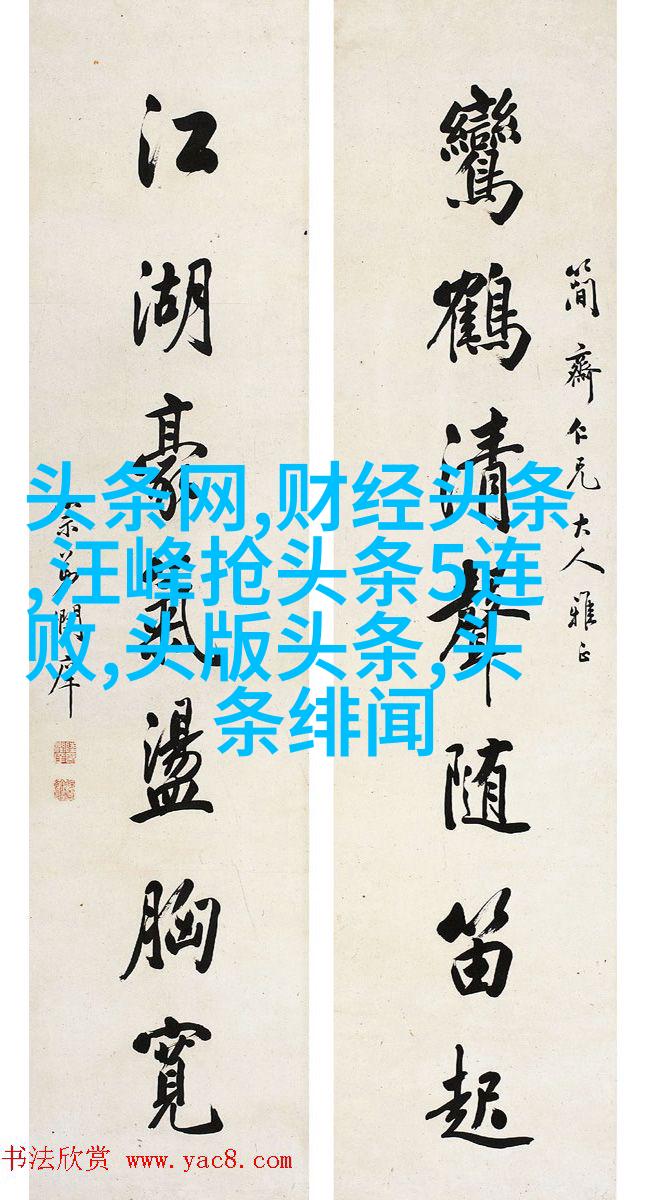 鸞鶴清聲随笛起
簡齋仁兄大人雅正
江湖豪氣盪胸寬
头条网,财经头条
,汪峰抢头条5连
败,头版头条,头
条绯闻
书法欣赏 www.yac8.com